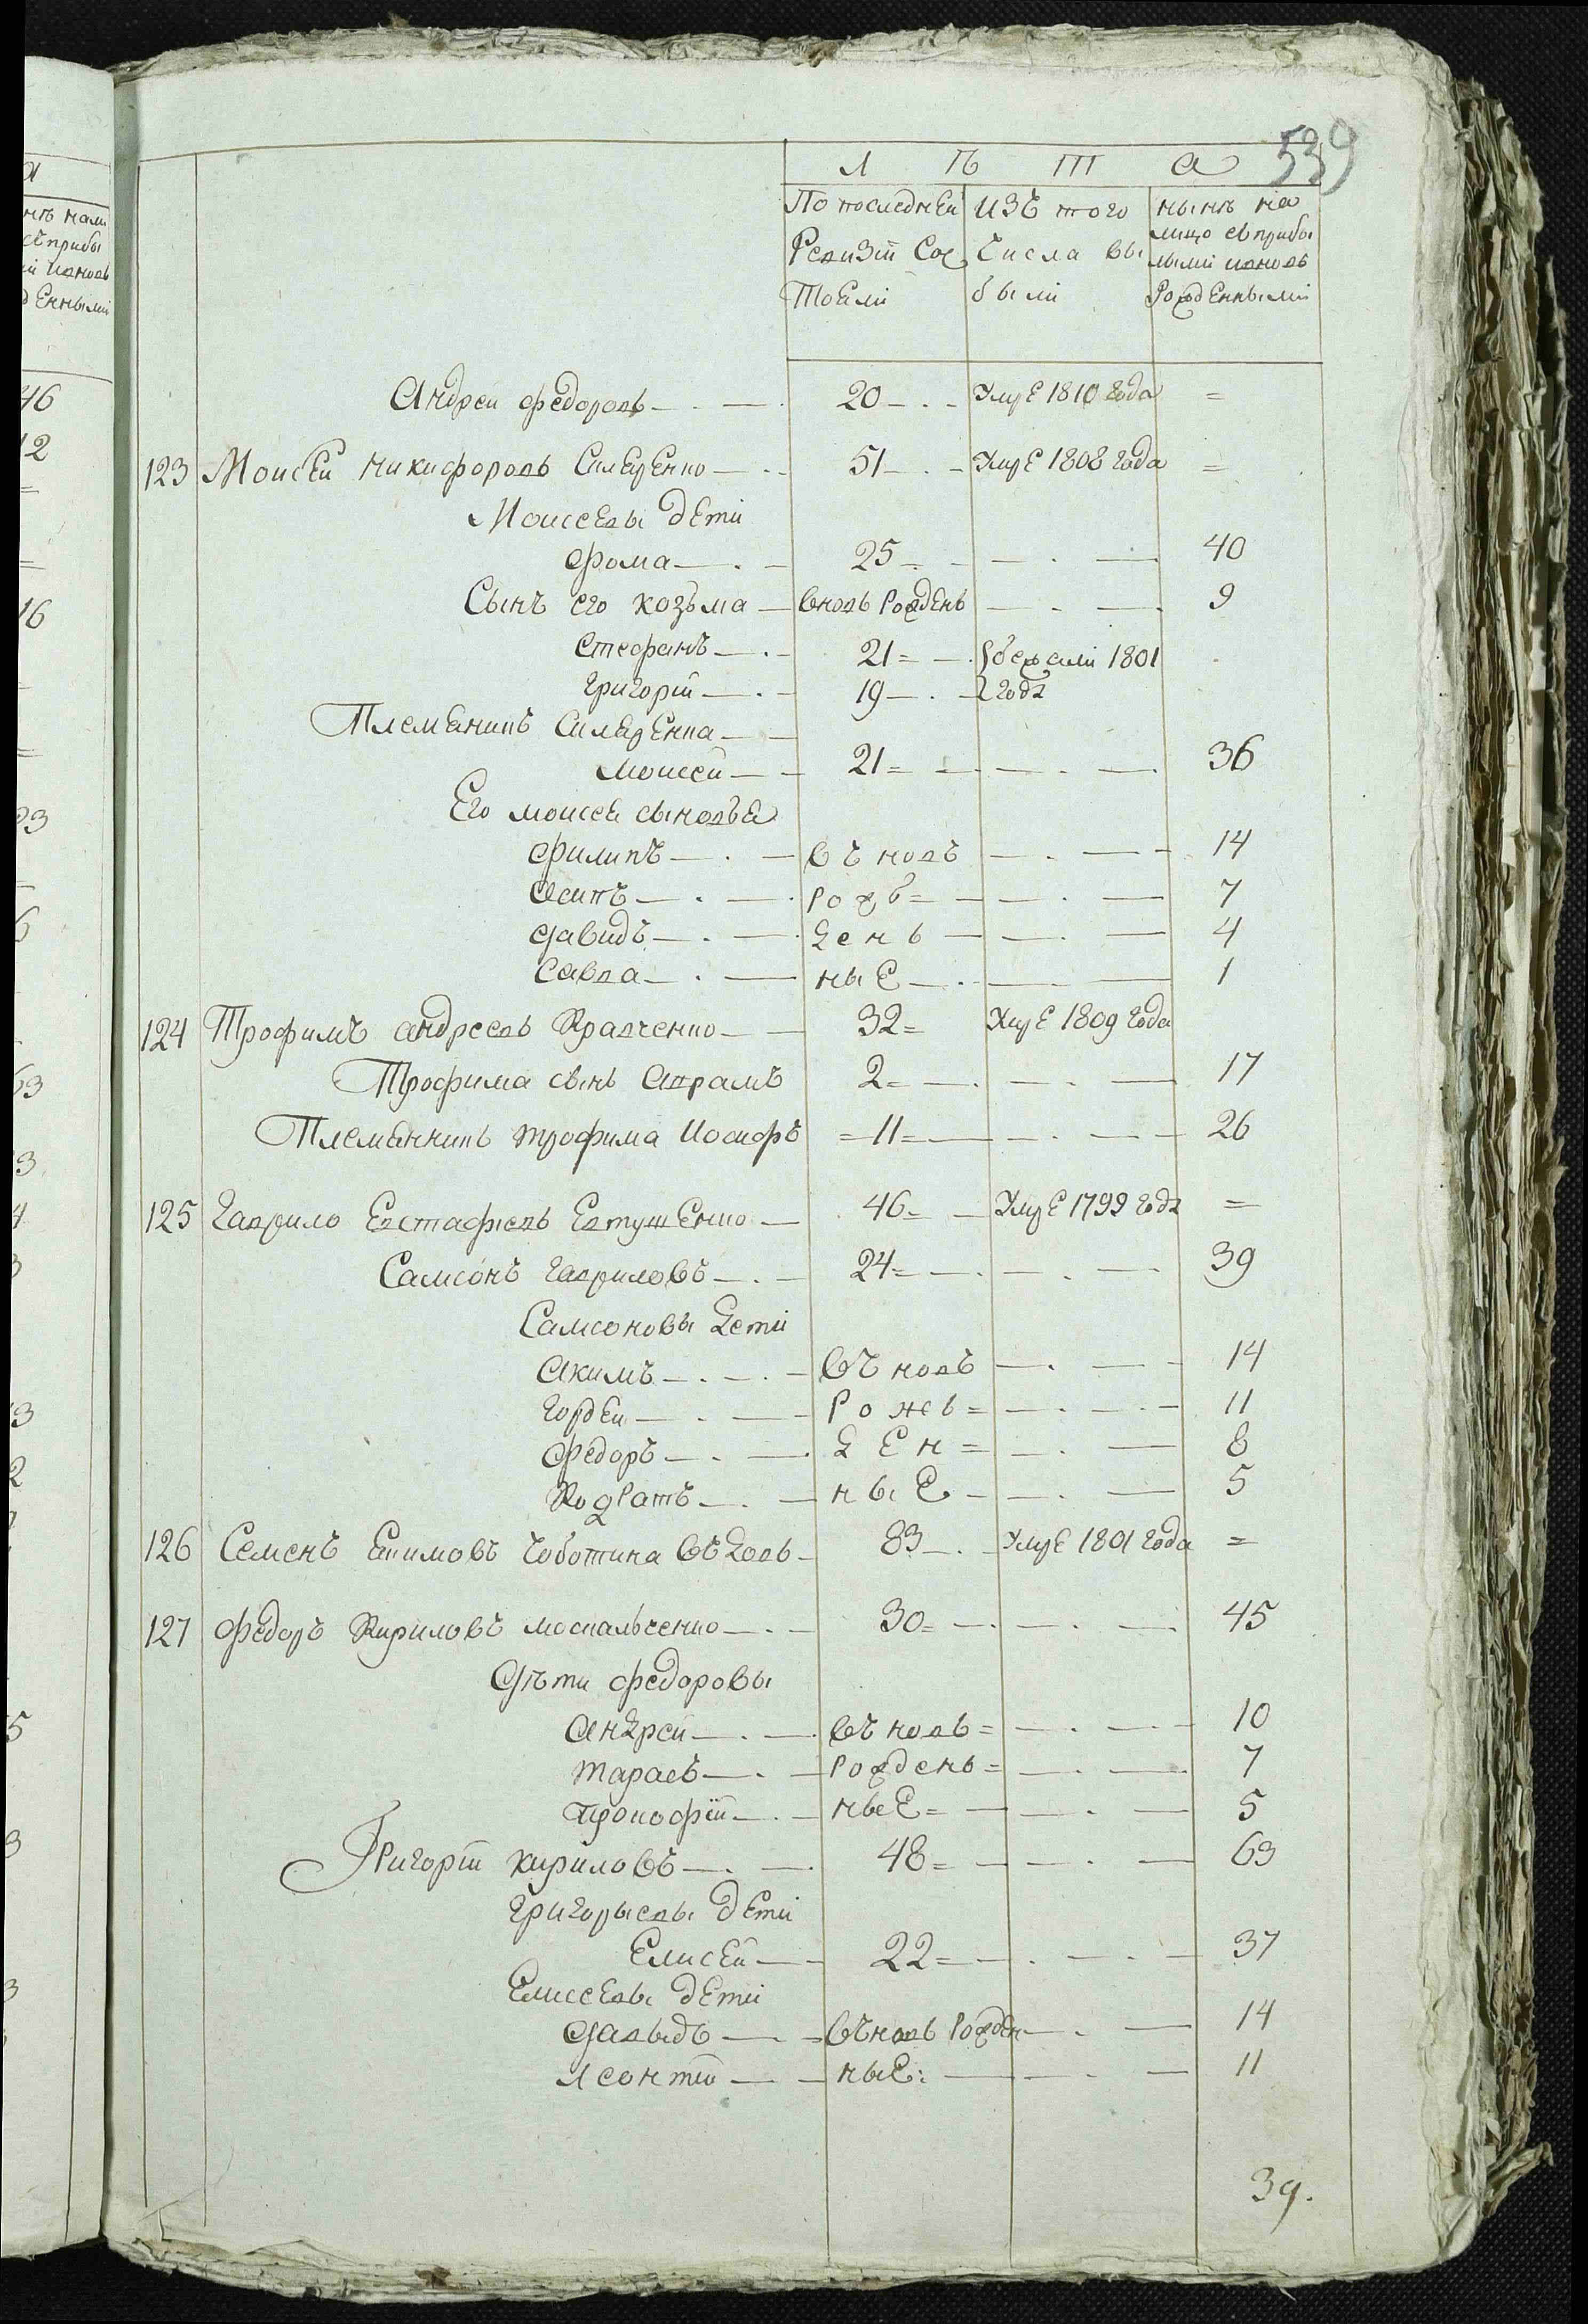 539
Л Ѣ Т А
По последней Ревизіи Сос тояли
изъ того числа вы были
нынѣ на лицо съ прибы лыми и вновь рожденными
Андрей Федоровъ — 20 — умре 1810 года =
123 Моисей Никифоровъ — 51 — умре 1808 года =
Моисеевы дети
Фома — 25 — 40
Сынъ его Козьма — вновь рожденъ — 9
Стефанъ — 21 = — бежали 1801
Григорій — 19 — года
Племяникъ
Моисей — 21 = — 36
Его Моисея сыновья
Филипъ — въ новь — 14
Осипъ — рожд = — 7
Давидъ — ень — 4
Савва — ные — 1
124 Трофимъ Андреевъ Кравченко — 32 = умре 1809 года
Трофима сынъ Аврамъ 2 = — 17
Племянникъ Трофима Иосифъ = 11 = — 26
125 Гаврило Евстафіевъ Евтушенко — 46 = — умре 1799 года =
Самсонъ Гавриловъ — 24 = — 39
Самсоновы дети
Акимъ — въ новь — 14
Гордей — рож = — 11
Федоръ — ден = — 8
Кодратъ — ные — 5
126 Семенъ Чоботина — 83 — умре 1801 года =
127 Федоръ Кириловъ Москальченко — 30 = — 45
Дѣти Федоровы
Андрей — въ новь = — 10
Тарасъ — рожденъ = — 7
Прокофій — ные = — 5
Григорій Кириловъ — 48 = — 63
Григорьевы дети
Елисей — 22 = — 37
Елисеевы дети
Давыдъ — въ новь рожден — 14
Леонтій — ные: — 11
39.